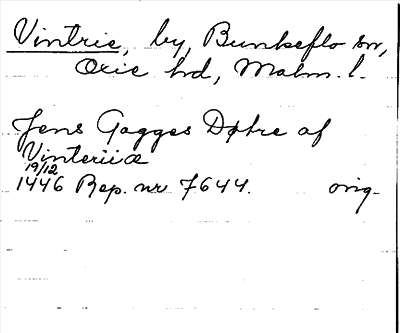 Vintrie, by, Bunkeflo sn,
Oxie hd, Malm. l.
Jens Gagges Døtre af
Vinteriiæ
19/12
1446 Rep. nr 7644. orig.